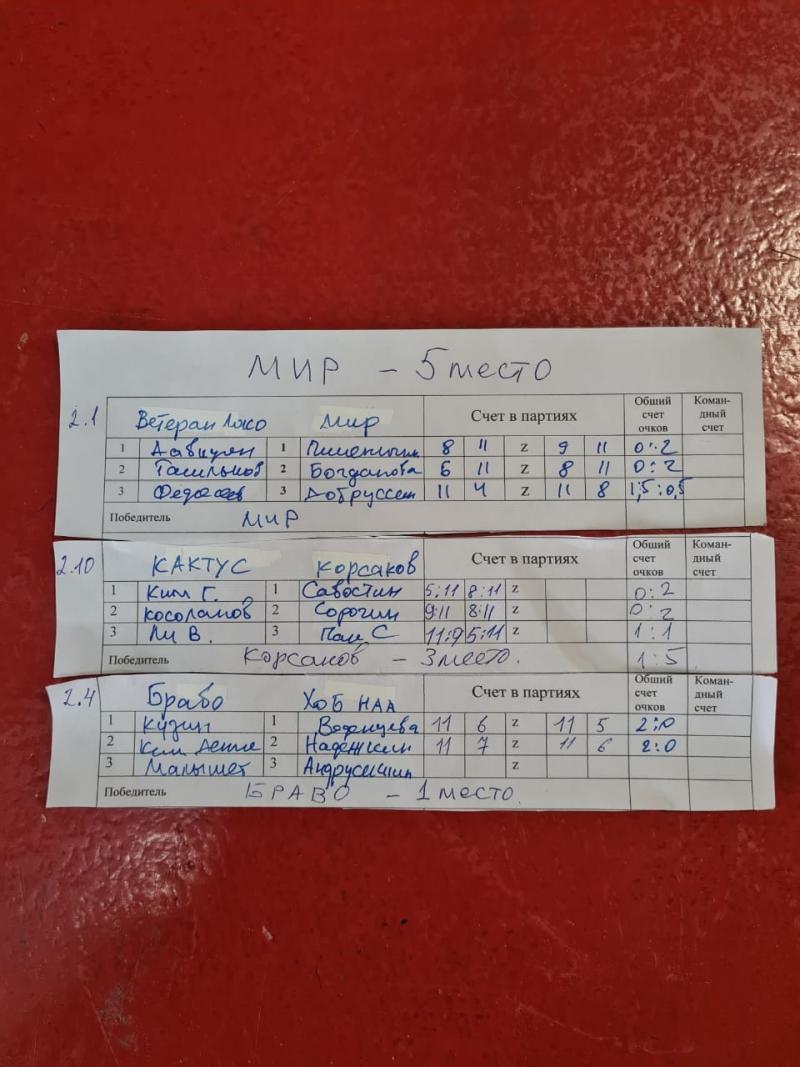 МИР - 5 место
2.1 Ветеран Локо Мир Счет в партиях Общий счет очков Коман-дный счет
1 Давидян 1 8 11 z 9 11 0:2
2 2 Богданова 6 11 z 8 11 0:2
3 3 Добруссен 11 4 z 11 8 1,5:0,5
Победитель МИР
2.10 КАКТУС Корсаков Счет в партиях Общий счет очков Коман-дный счет
1 Ким Г. 1 Савостин 5:11 8:11 z 0:2
2 Косолапов 2 Сорочин 9:11 8:11 z 0:2
3 Ли В. 3 Пак С 11:9 5:11 z 1:1
Победитель Корсаков - 3 место. 1:5
2.4 Браво ХОБ НАА Счет в партиях Общий счет очков Коман-дный счет
1 Кузин 1 11 6 z 11 5 2:0
2 Ким 2 Надежкин 11 7 z 11 6 2:0
3 Малышет 3 z
Победитель БРАВО - 1 место.